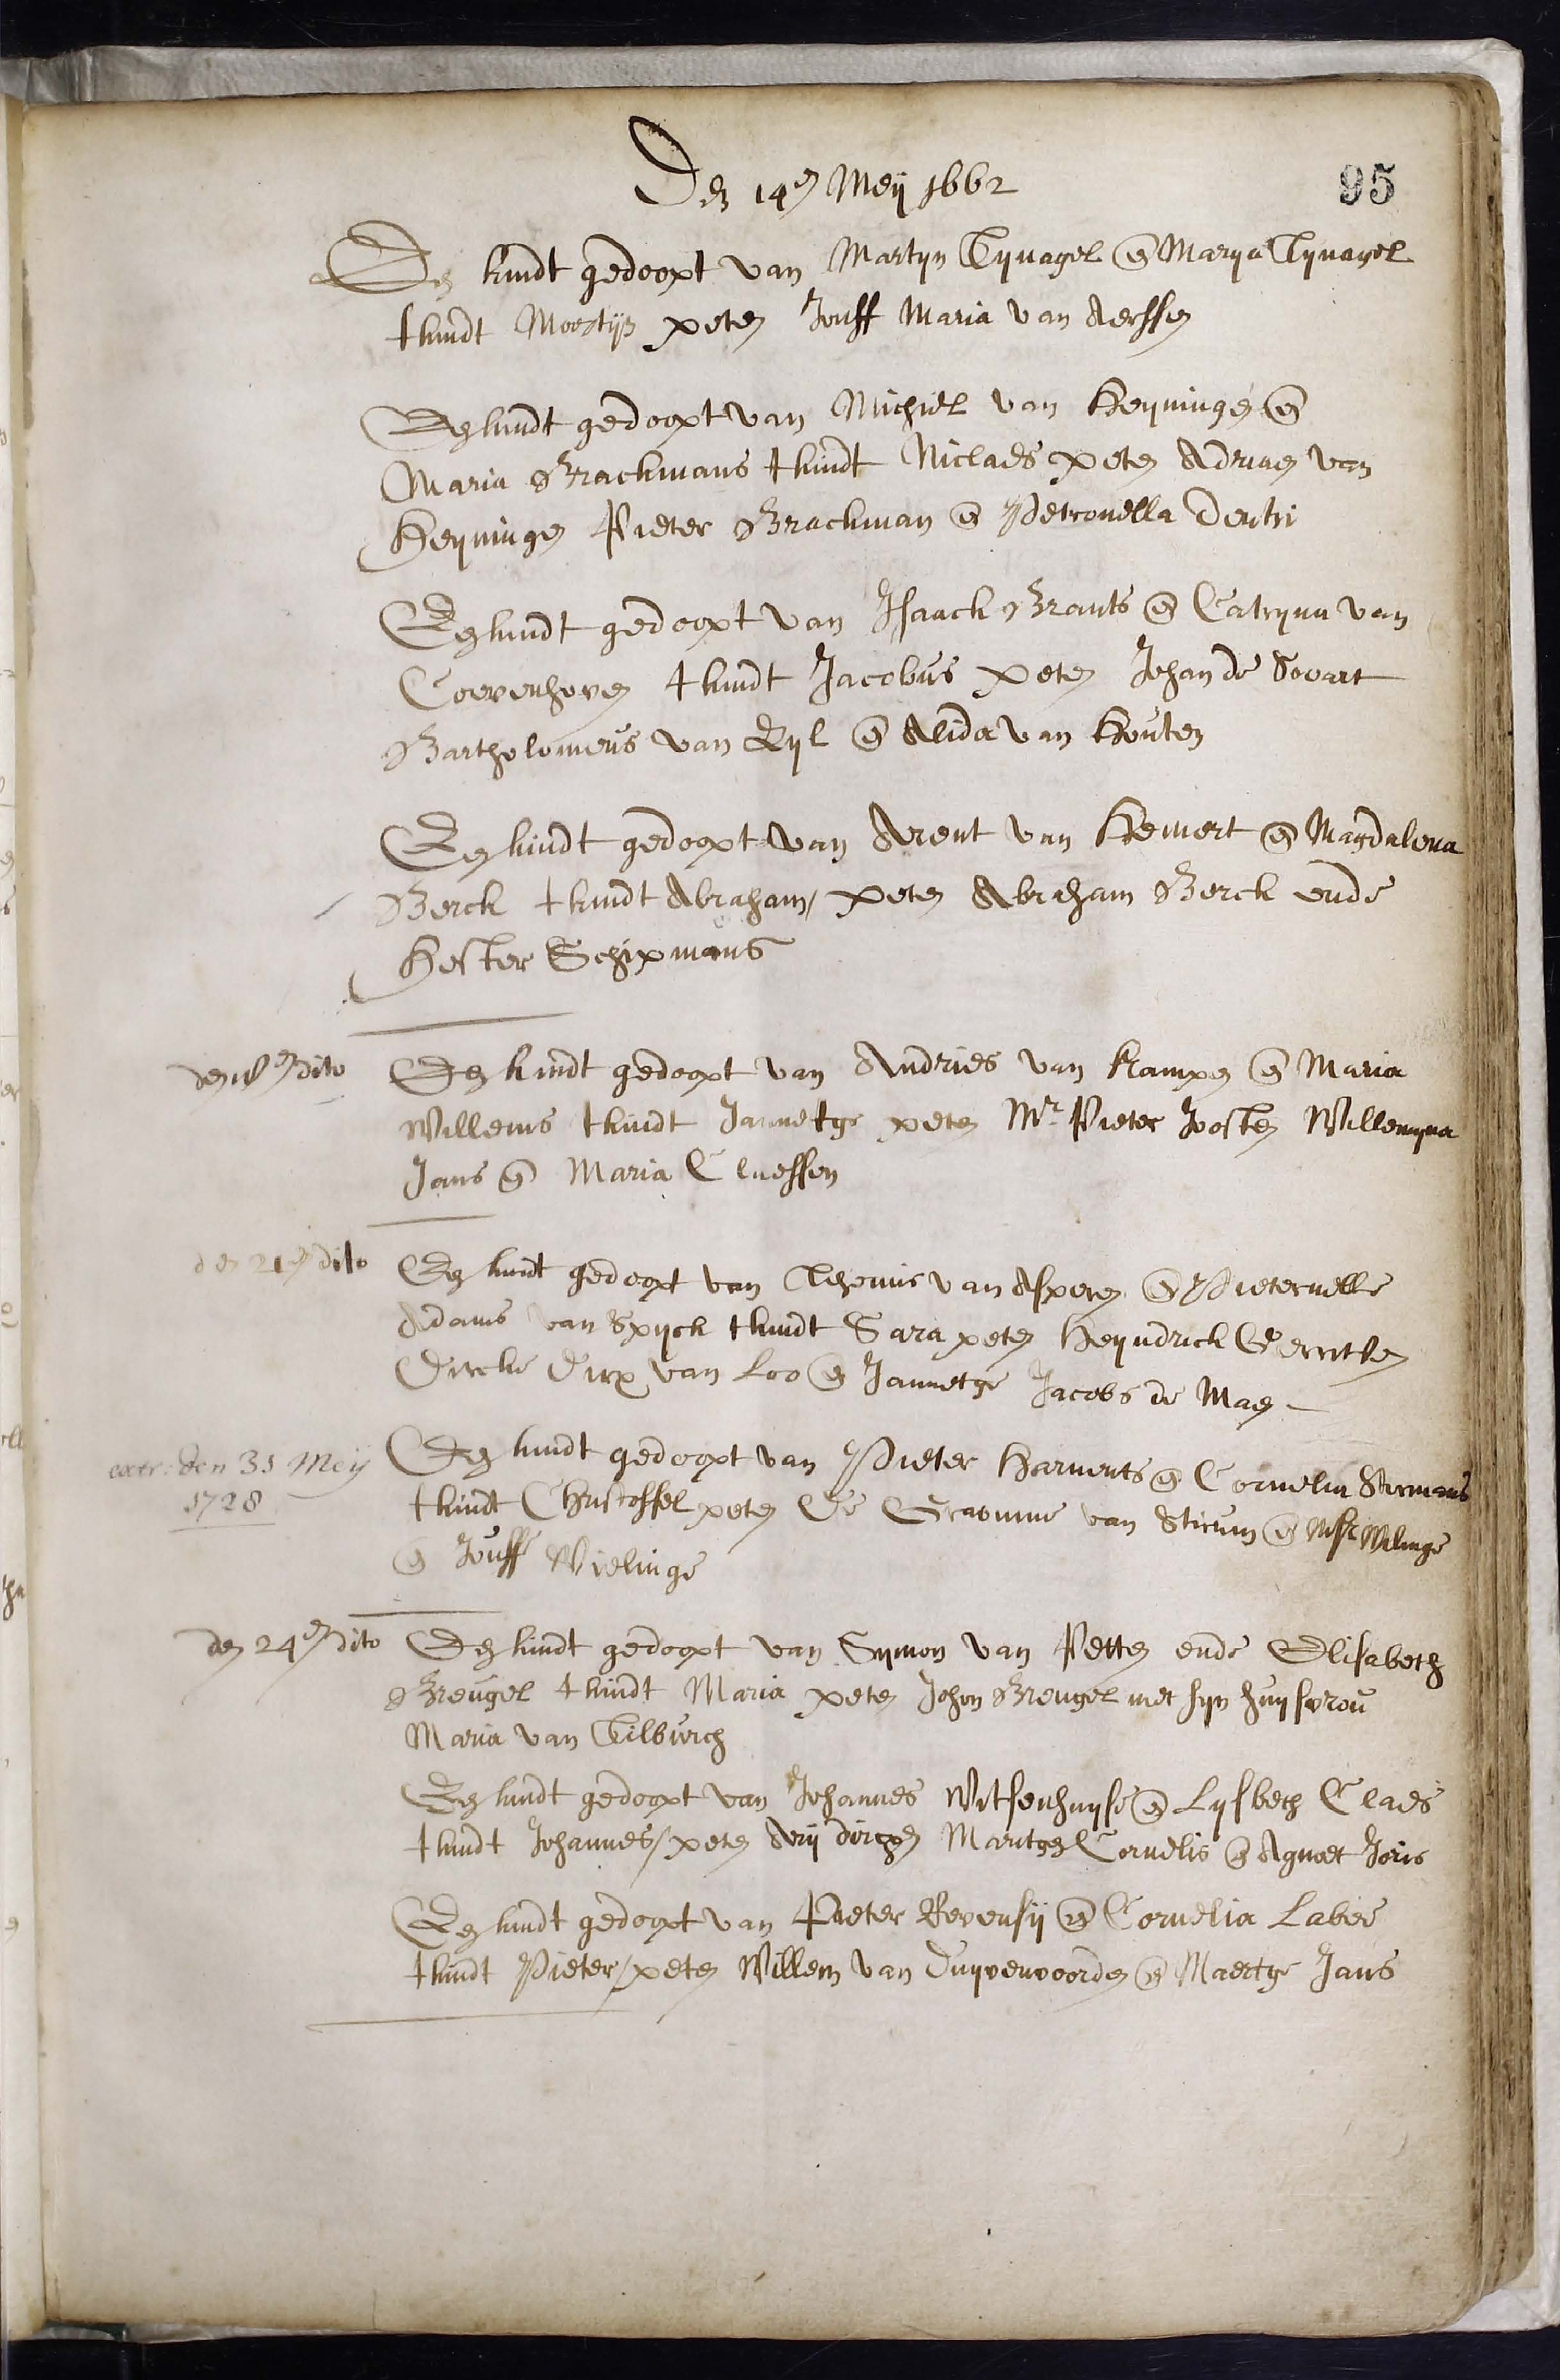 95
Den 14en Meij 1662
Een kindt gedoopt van Martijn Tijnagel en Marya Tijnagel
tkindt peten Jouff Maria van Aerssen
Een kindt gedoopt van Michiel van Heijningen en
Maria Brackmans tkindt Niclaes peten Adriaen van
Heijningen Pieter Brackman en Petronella
Een kindt gedoopt van Isaack Brants en Catryna van
Coevenhoven tkindt Jacobus peten Johan de Swart
Bartholomeus van Ryl en Alida van Houten
Een kindt gedoopt van Arent van Hemert en Magdalena
Berck tkindt Abraham / peten Abraham Berck ende
Hester Schipmans
den 18en dito Een kindt gedoopt van Andries van Kampen en Maria
Willems tkindt Jannetge peten Mr Pieter Joosten Willemyna
Jans en Maria Claessen
den 21en dito Een kindt gedoopt van Thonis van Asperen en Pieternelle
Adams van Spijck tkindt Sara peten Heijndrick Gerritsen
Dirckie Dirx van Loo en Jannetge Jacobs de Maen
extr: den 31 Meij
1728
Een kindt gedoopt van Pieter Harments en Cornelia
tkindt Christoffel peten De Graevinne van Stirum en
en Jouff Wielinge
den 24en dito Een kindt gedoopt van Symon van Petten ende Elisabeth
Breugel tkindt Maria peten Johan Breugel met syn huysvrou
Maria van Tilburch
Een kindt gedoopt van Johannes Witsenhuyse en Lysbeth Claes
tkindt Johannes / peten Arij dircxen Maritge Cornelis en Agniet Joris
Een kindt gedoopt van Pieter Revensij en Cornelia Labee
tkindt Pieter / peten Willem van Duyvenvoorden en Maertge Jans